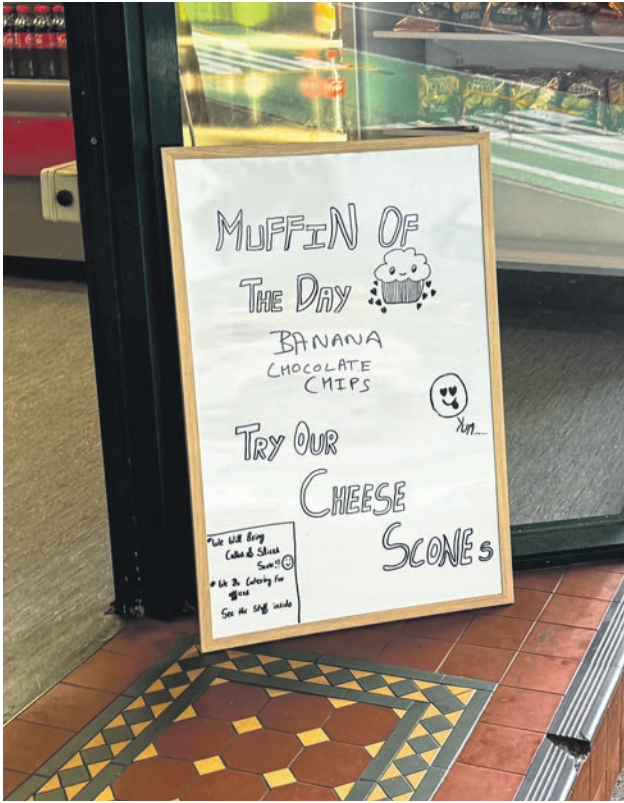 MUFFIN OF
THE DAY
BANANA
CHOCOLATE
CHIPS
Yum....
TRY OUR
CHEESE
SCONES
*We Will Bring
Cakes & Slices
Soon!!
* We Do Catering For
offices
See the Staff inside